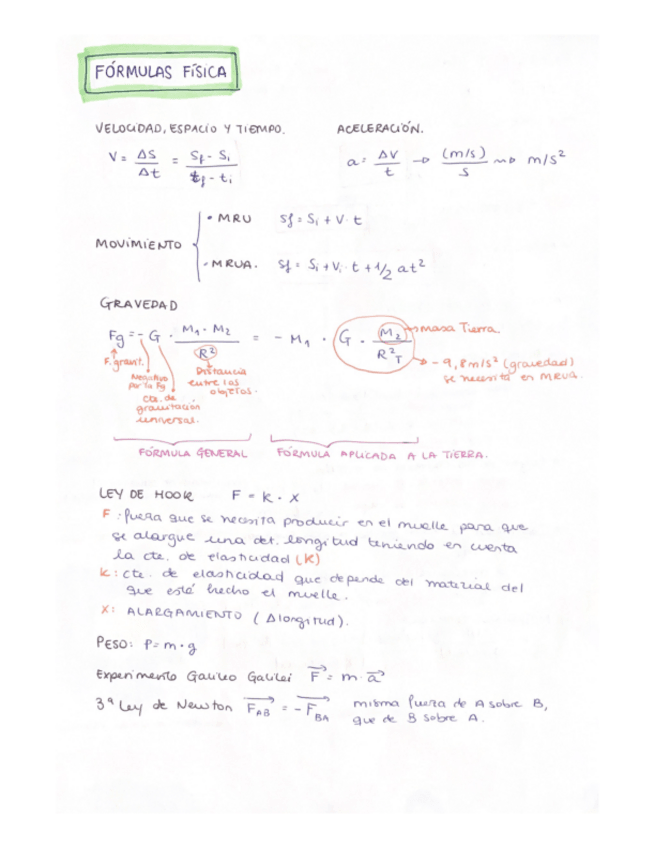 FÓRMULAS FÍSICA
VELOCIDAD, ESPACIO Y TIEMPO.
ACELERACIÓN.
V = ΔS / Δt = Sf - Si / tf - ti
a = ΔV / t → (m/s) / s ⇝ m/s²
MOVIMIENTO
• MRU Sf = Si + V · t
• MRUA. Sf = Si + Vi · t + 1/2 at²
GRAVEDAD
Fg = - G · M1 · M2 / R² = - M1 · G · M2 / R²T
→ masa Tierra.
→ - 9,8 m/s² (gravedad)
se necesita en MRUA.
F. gravit.
Negativo
por la Fg
cte. de
gravitación
universal.
Distancia
entre los
objetos.
FÓRMULA GENERAL
FÓRMULA APLICADA A LA TIERRA.
LEY DE HOOK F = k · x
F: fuerza que se necesita producir en el muelle para que
se alargue una det. longitud teniendo en cuenta
la cte. de elasticidad (K)
K: cte. de elasticidad que depende del material del
que está hecho el muelle.
X: ALARGAMIENTO (Δlongitud).
PESO: P = m · g
Experimento Galileo Galilei F⃗ = m · a⃗
3ª Ley de Newton F⃗AB = - F⃗BA misma fuerza de A sobre B,
que de B sobre A.